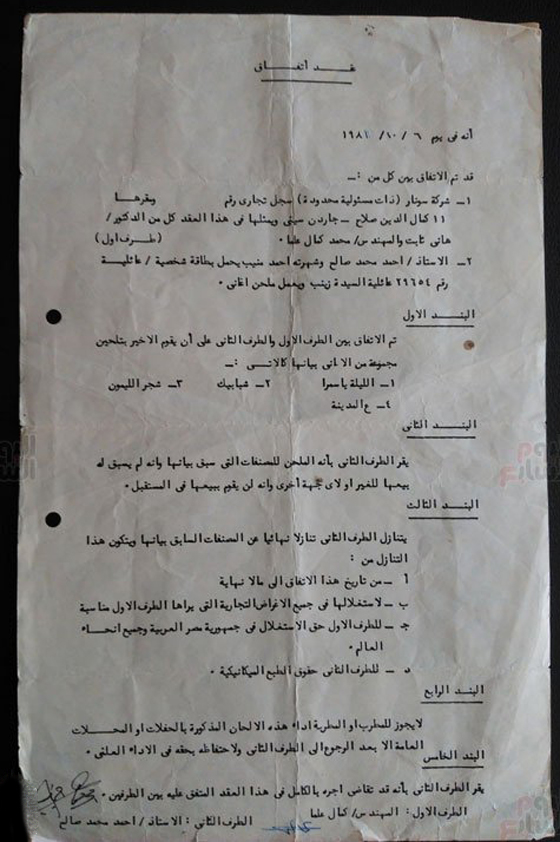 عقد اتفاق
أنه فى يوم ٦ / ١٠ / ١٩٨١
قد تم الاتفاق بين كل من :ـ
١ـ شركة سونار (ذات مسئولية محدودة) سجل تجارى رقم ومقرها
١١ كمال الدين صلاح ـ جاردن سيتى ويمثلها فى هذا العقد كل من الدكتور /
هانى ثابت والمهندس / محمد كمال علما . (طرف اول)
٢ـ الاستاذ / احمد محمد صالح وشهرته احمد منيب يحمل بطاقة شخصية / عائلية
رقم ٢٩٦٥٤ عائلية السيدة زينب ويعمل ملحن اغانى .
البند الاول
تم الاتفاق بين الطرف الاول والطرف الثانى على أن يقوم الاخير بتلحين
مجموعة من الاغانى بيانها كالاتى :ـ
١ـ الليلة ياسمرا ٢ـ شبابيك ٣ـ شجر الليمون
٤ـ ع المدينة
البند الثانى
يقر الطرف الثانى بأنه الملحن للمصنفات التى سبق بيانها وانه لم يسبق له
بيعها للغير او لاى جهة أخرى وانه لن يقوم ببيعها فى المستقبل .
البند الثالث
يتنازل الطرف الثانى تنازلا نهائيا عن المصنفات السابق بيانها ويتكون هذا
التنازل من :
أ ـ من تاريخ هذا الاتفاق الى مالا نهاية
ب ـ لاستغلالها فى جميع الاغراض التجارية التى يراها الطرف الاول مناسبة
جـ ـ للطرف الاول حق الاستغلال فى جمهورية مصر العربية وجميع انحاء
العالم .
د ـ للطرف الثانى حقوق الطبع الميكانيكية .
البند الرابع
لايجوز للمطرب او المطربة اداء هذه الالحان المذكورة بالحفلات او المحلات
العامة الا بعد الرجوع الى الطرف الثانى ولاحتفاظه بحقه فى الاداء العلنى .
البند الخامس
يقر الطرف الثانى بأنه قد تقاضى اجره بالكامل فى هذا العقد المتفق عليه بين الطرفين .
الطرف الاول : المهندس / كمال علما الطرف الثانى : الاستاذ / احمد محمد صالح